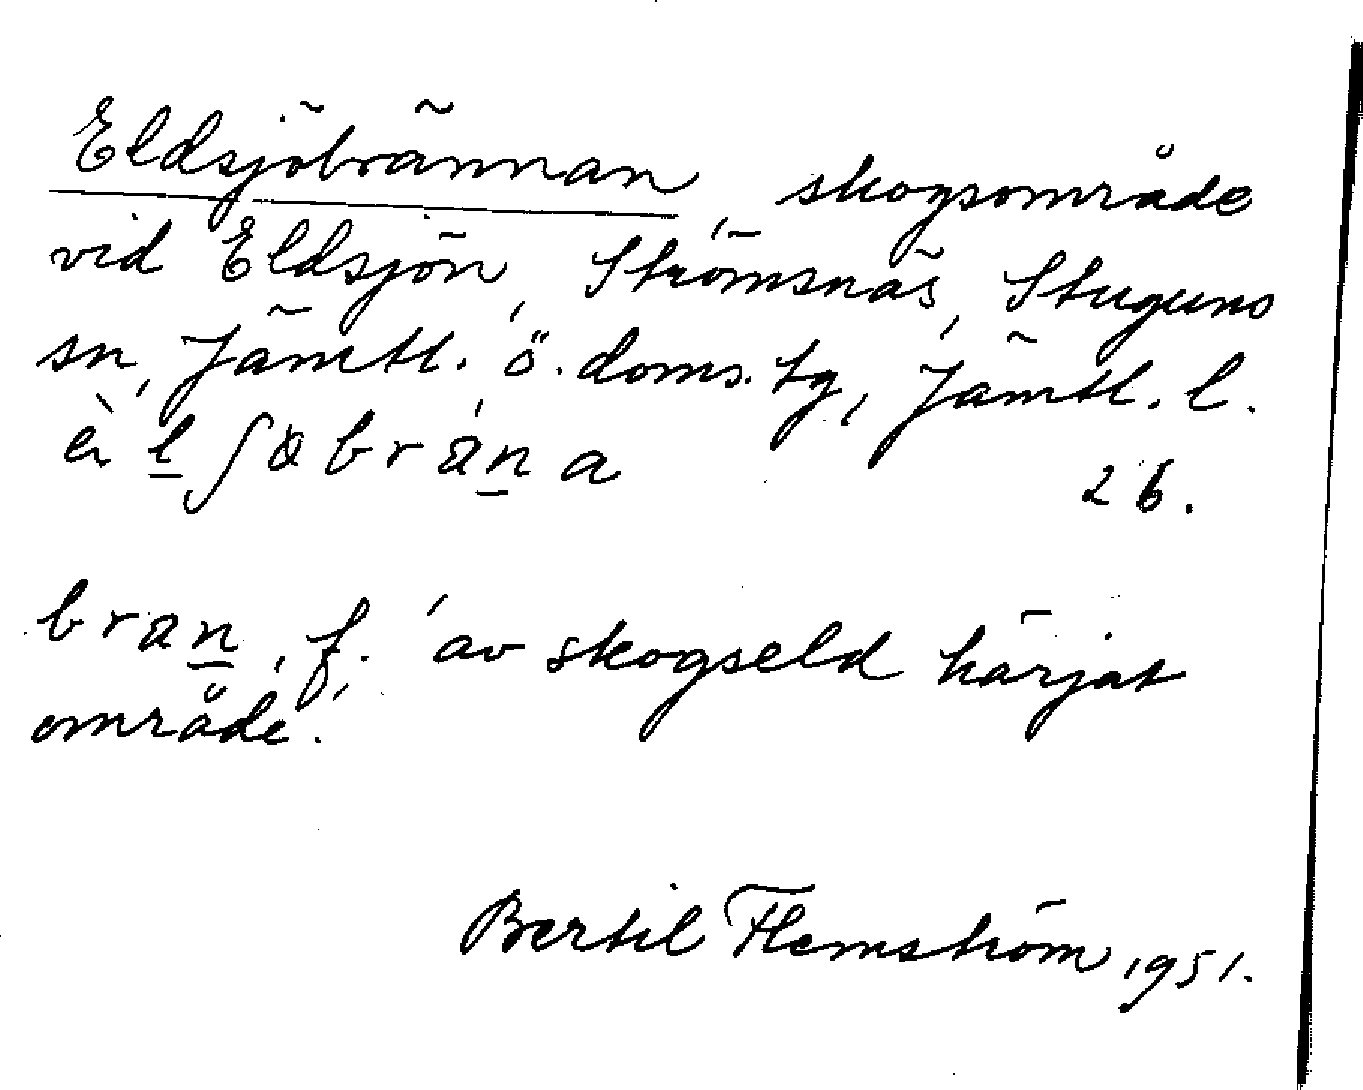 Eldsjöbrännan, skogsområde
vid Eldsjön, Strömsnäs, Stuguns
sn, Jämtl. ö. doms. tg, Jämtl. l.
26.
bran, f. 'av skogseld härjat
område'.
Bertil Flemström 1951.